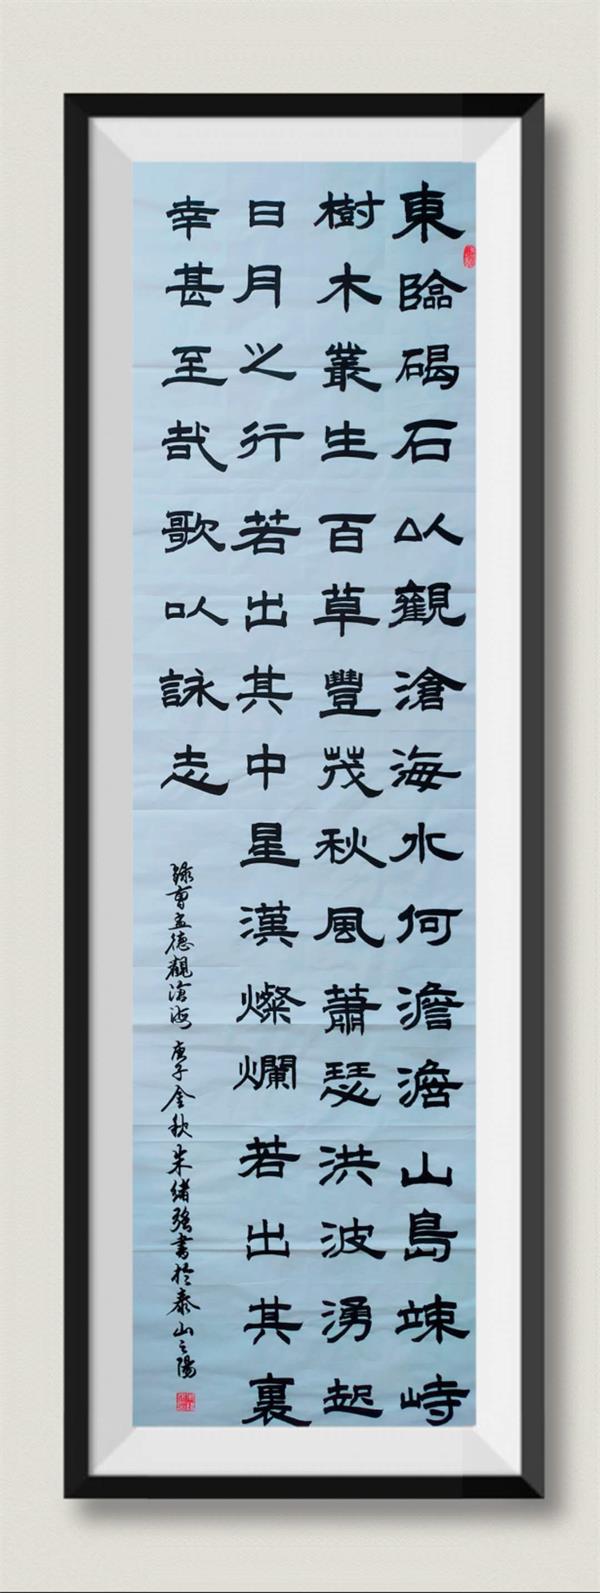 東臨碣石以觀滄海水何澹澹山島竦峙
樹木叢生百草豐茂秋風蕭瑟洪波湧起
日月之行若出其中星漢燦爛若出其裏
幸甚至哉歌以詠志
錄曹孟德觀滄海 庚子金秋朱緒強書於泰山之陽